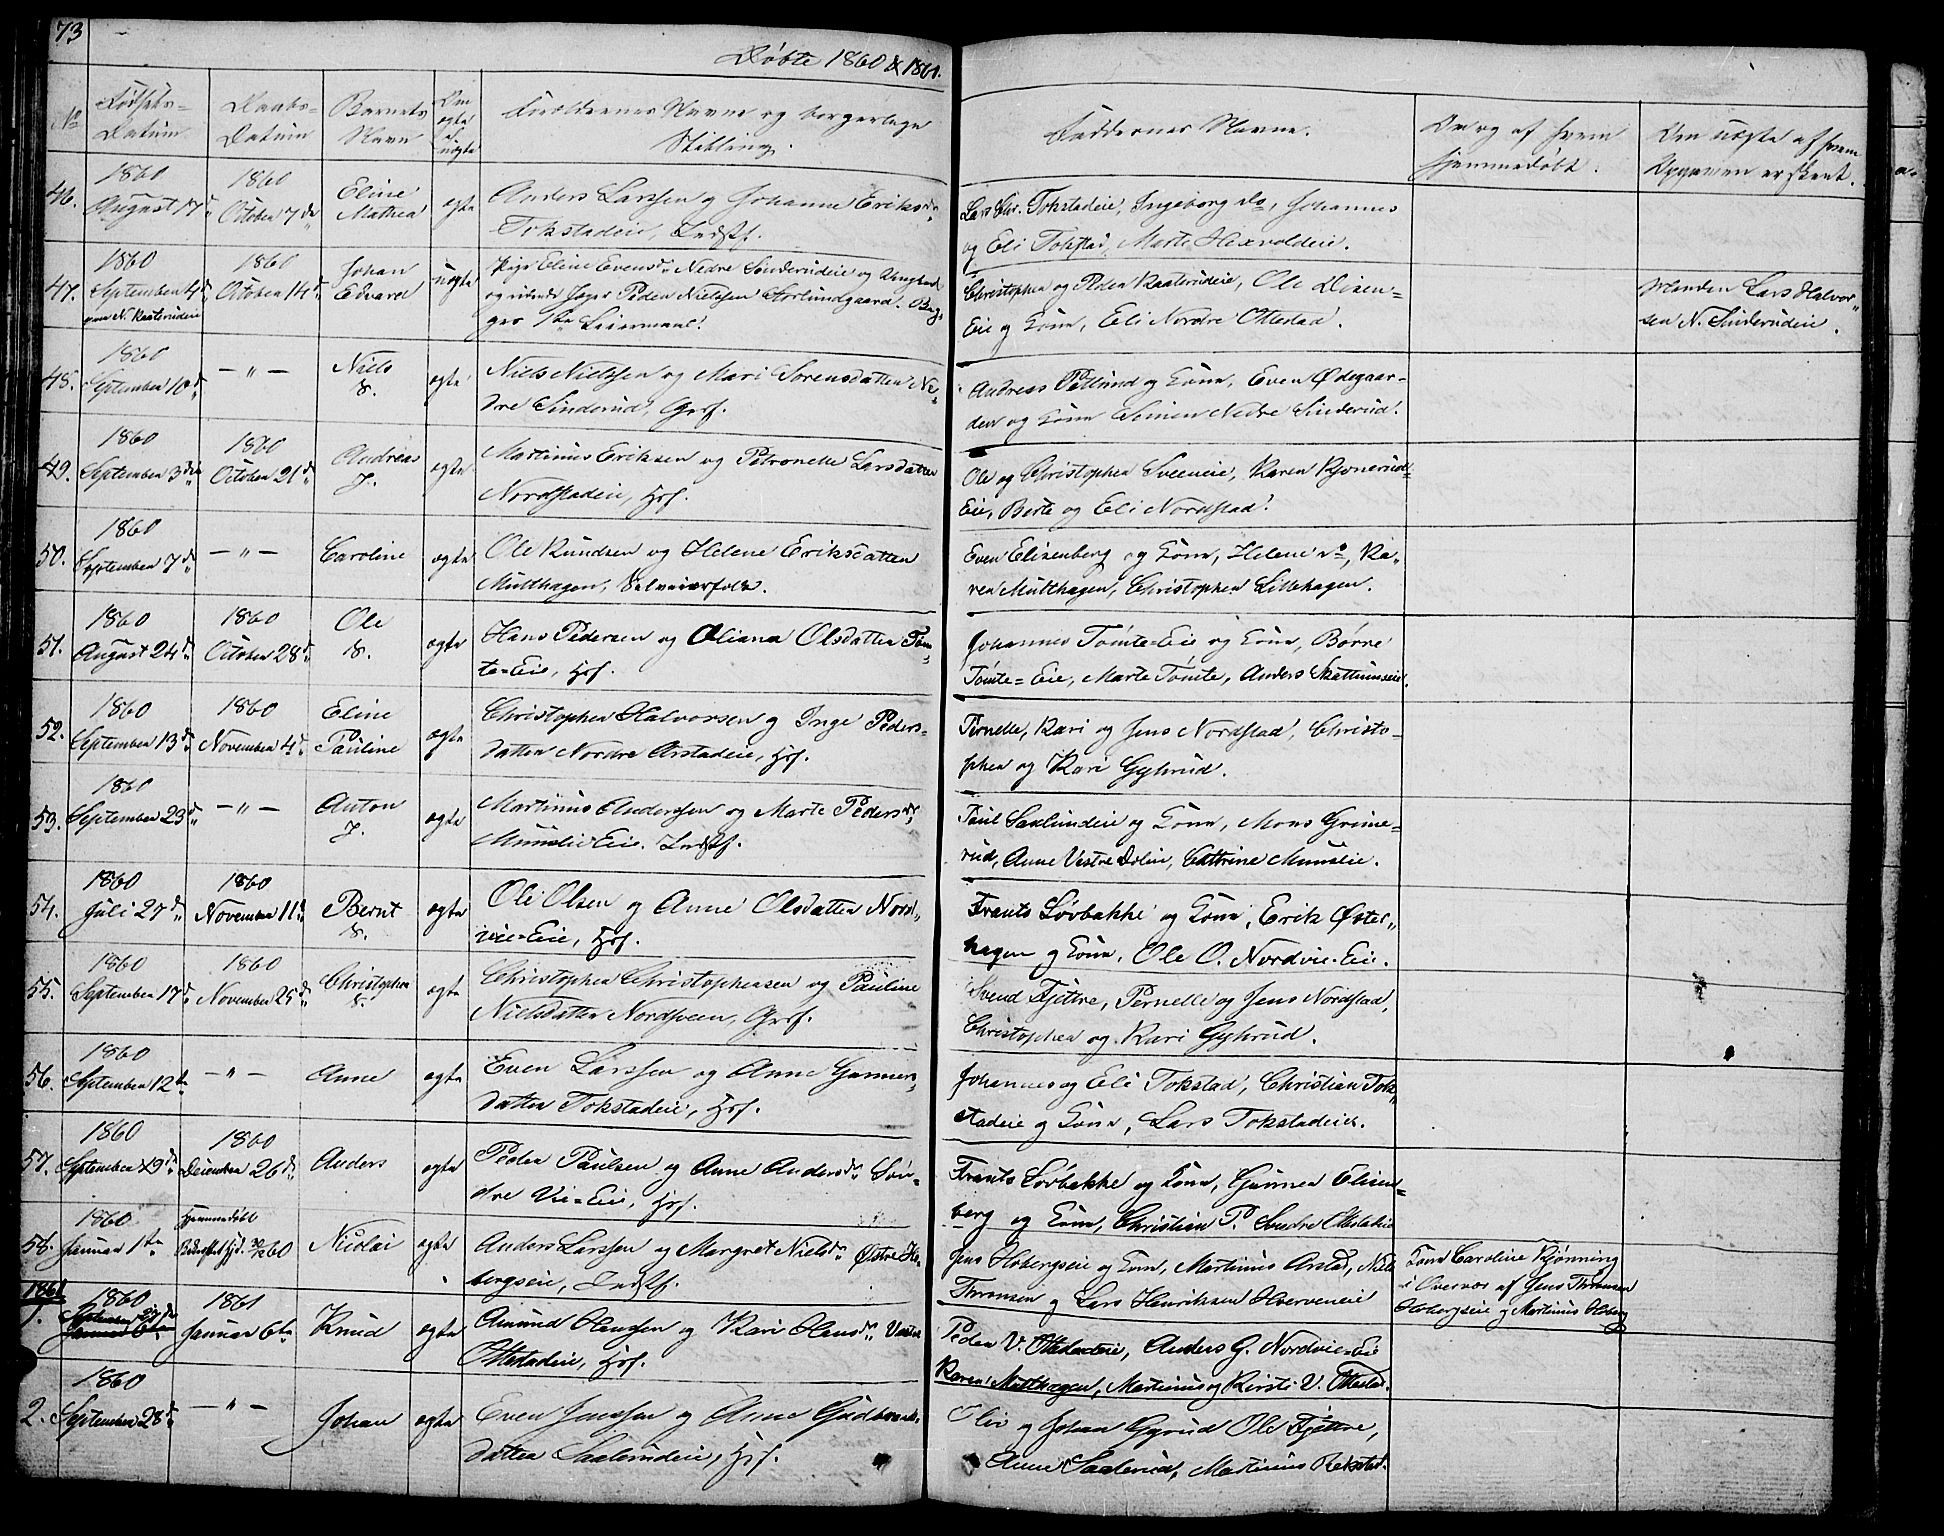 73
Döbte 1860 & 1861.
No
Födsels-
Datum
Daabs-
Datum
Barnets
Navn
Om
ægte
el.
uægte
Forældrenes Navne og borgerlige
Stilling.
Faddernes Navne.
Om og af hvem
hjemmedöbt.
Om uægte af hvem
Opgaven er skeet.
46.
1860
August 17de
1860
October 7de
Eline
Mathea
ægte
Anders Larssen og Johanne Eriksdr.
Tokstadeie, Indstf.
Lars Chr. Tokstadeie, Ingeborg do, Johannes
og Eli Tokstad, Marte Hexvoldeie.
47.
1860
September 4de
paa N. Kaaterudeie
1860
October 14de
Johan
Edvard
uægte
Pige Eline Evensdr. Nedre Sinderudeie og Ungkarl
og udend. Jæger Peder Nielssen Storlundgaard. Beg-
ges 1ste Leiermaal.
Christopher og Peder Kaaterudeie, Ole Disen-
Eie og Kone, Eli Nordre Ottestad.
Manden Lars Halvor-
sen N. Sinderudeie.
48.
1860
September 10de
— " —
Niels
S.
ægte
Niels Nielssen og Mari Sörensdatter Ne-
dre Sinderud, Grf.
Andreas Petlund og Kone, Even Ødegaar-
den og Kone Simen Nedre Sinderud.
49.
1860
September 3die
1860
October 21de
Andreas
J.
ægte
Martinus Eriksen og Petronelle Larsdatter
Nordstadeie, Hsf.
Ole og Christopher Sveeneie, Karen Kjonerud-
Eie, Berte og Eli Nordstad.
50.
1860
September 7de
— " —
Caroline
ægte
Ole Knudsen og Helene Eriksdatter
Mutthagen, Selveierfolk.
Even Elisenberg og Kone, Helene do, Ka-
ren Mutthagen, Christopher Lillehagen.
51.
1860
August 24de
1860
October 28de
Ole
S.
ægte
Hans Pedersen og Oliana Olsdatter Töm-
te-Eie, Hsf.
Johannes Tömte-Eie og Kone, Börre
Tömte-Eie, Marte Tömte, Anders Skattumseie.
52.
1860
September 13de
1860
November 4de
Eline
Pauline
ægte
Christopher Halvorsen og Inge Peders-
datter Nordre Arstadeie, Hsf.
Pernelle, Kari og Jens Nordstad, Christo-
pher og Kari Gyhrud.
53.
1860
September 23de
— " —
Anton
J.
ægte
Martinus Anderssen og Marte Pedersdr.
Munslie Eie. Indstf.
Paul Saxlundeie og Kone, Mons Grime-
rud, Anne Vestre Dölin, Cathrine Munslie.
54.
1860
Juli 27de
1860
November 11te
Bernt
S.
ægte
Ole Olsen og Anne Olsdatter Nord-
vie-Eie, Hsf.
Frants Lövbakke og Kone, Erik Øster-
hagen og Kone, Ole O. Nordvie-Eie.
55.
1860
September 17de
1860
November 25de
Christopher
S.
ægte
Christopher Christophersen og Pauline
Nielsdatter Nordsveen, Grf.
Svend Fjettre, Pernelle og Jens Nordstad,
Christopher og Kari Gyhrud.
56.
1860
September 12te
— " —
Anne
ægte
Even Larssen og Anne Gunners-
datter Tokstadeie, Hsf.
Johannes og Eli Tokstad, Christian Tok-
stadeie og Kone, Lars Tokstadeie.
57.
1860
September 29de
1860
December 26de
Anders
ægte
Peder Paulsen og Anne Andersdr. Sön-
dre Vie-Eie, Hsf.
Frants Lövbakke og Kone, Gunner Elisen-
berg og Kone, Christian P. Söndre Ottestad
58.
1860
Januar 1ste
Hjemmedöbt
60
Nicolai
ægte
Anders Larssen og Margret Nielsdr. Østre Ho-
bergseie, Indstf.
Jens Hobergseie og Kone, Martinus Arstad, Niels
Thronsen og Lars Henriksen Hverveneie
Kone Caroline Kjönning
i Overvær af Jens Thronsen
Hobergseie og Martinus Hoberg
1861
1.
1860
27de
1861
Januar 6te
Knud
ægte
Amund Hanssen og Kari Hansdr. Vestre
Ottestadeie, Hsf.
Peder V. Ottestadeie, Anders G. Nordvie-Eie
Karen Mutthagen, Martinus og Kirsti V. Ottestad.
2.
1860
September 28de
— " —
Johan
ægte
Even Jenssen og Anne Gudbrands-
datter Saaterudeie, Hsf.
Oliv og Johan Gyrud Ole Fjettre,
Anne Saaterud, Martinus Rekstad.